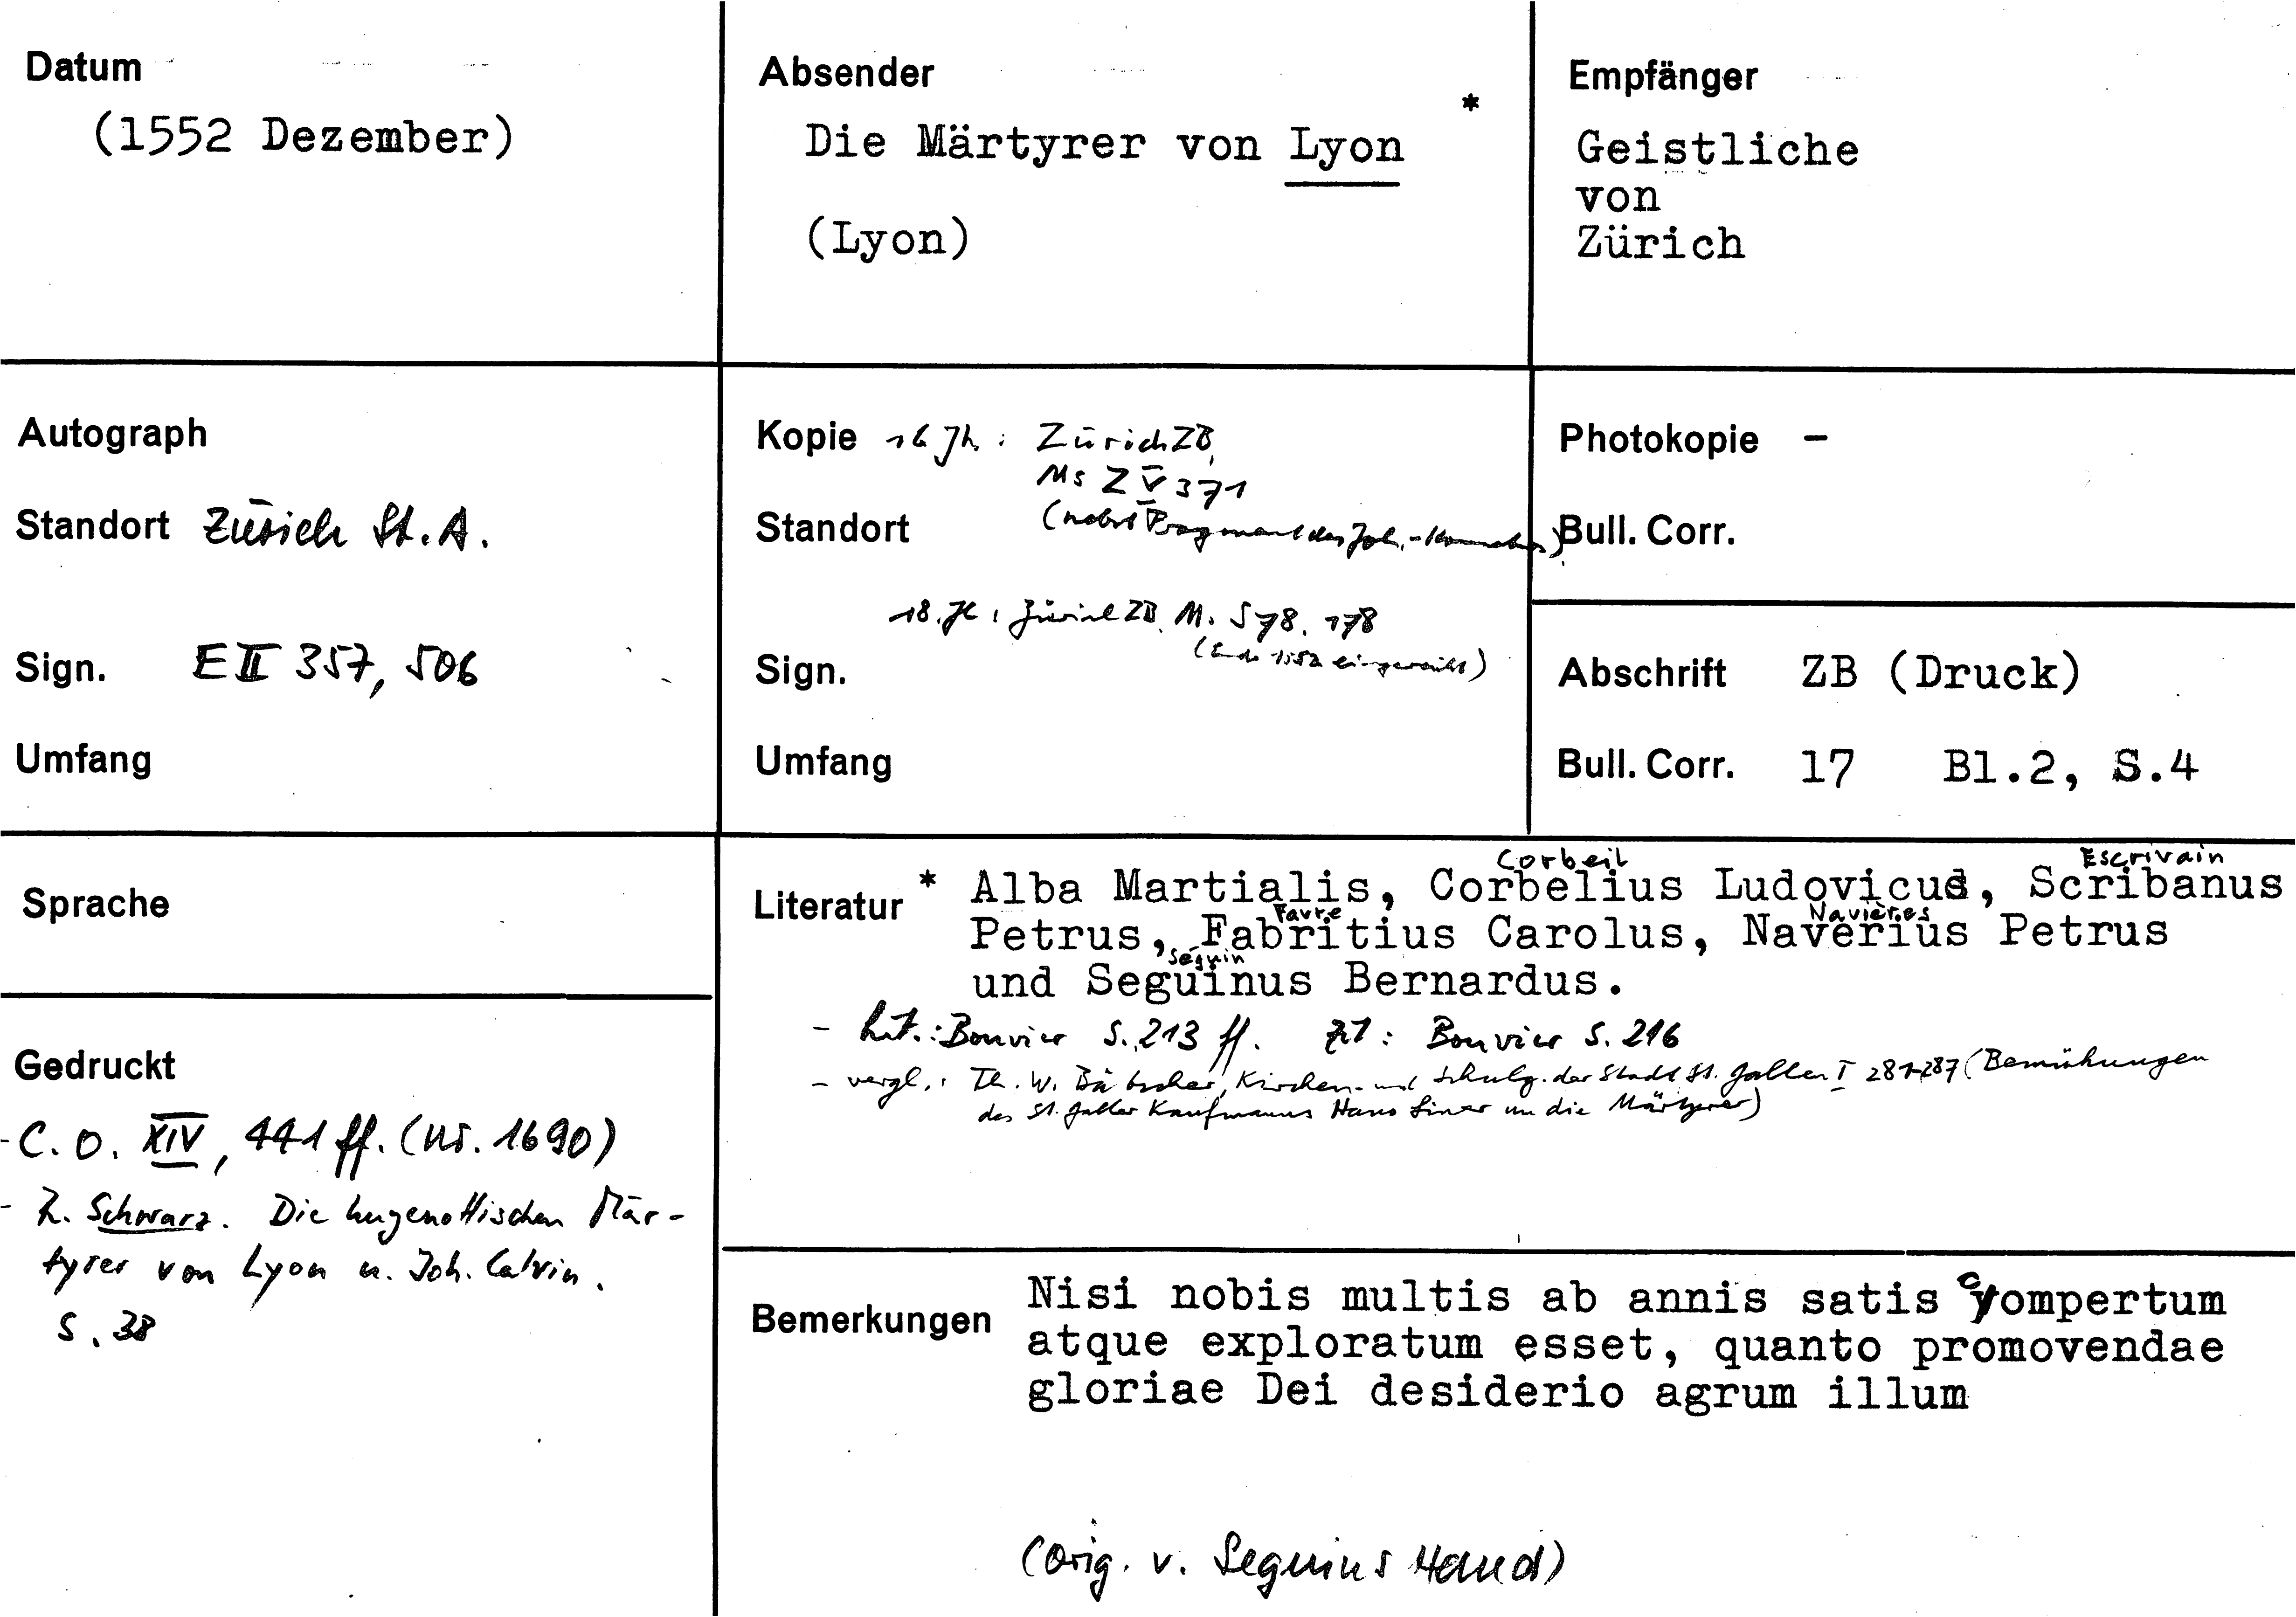 Datum
(1552 Dezember)
Absender
*
Die Märtyrer von Lyon
(Lyon)
Empfänger
Geistliche
von
Zürich
Autograph
Standort Zürich St.A.
Sign. E II 357, 506
Umfang
Kopie 16 Jh. : Zürich ZB,
Ms Z V 371
Standort (nebst Fragment des Joh.-)
18. Jh : Zürich ZB. Ms. S 78. 178
(Ende 1552 eingereiht)
Sign.
Umfang
Photokopie –
Bull. Corr.
Abschrift ZB (Druck)
Bull. Corr. 17 Bl.2, S.4
Sprache
Gedruckt
- C. O. XIV, 441 ff. (Nr. 1690)
- R. Schwarz. Die hugenottischen Mär-
tyrer von Lyon u. Joh. Calvin.
S. 38
Corbeil Escrivain
Literatur * Alba Martialis, Corbelius Ludovicus, Scribanus
Favre Navières
Petrus, Fabritius Carolus, Naverius Petrus
Seguin
und Seguinus Bernardus.
- Lit.: Bouvier S. 213 ff. Zit: Bouvier S. 216
- vergl.: Th. W. Bätscher, Kirchen- und Schulg. der Stadt St. Gallen I 281-287 (Bemühungen
des St. Galler Kaufmanns Hans Liner um die Märtyrer)
Bemerkungen Nisi nobis multis ab annis satis compertum
atque exploratum esset, quanto promovendae
gloriae Dei desiderio agrum illum
(Orig. v. Seguins Hand)